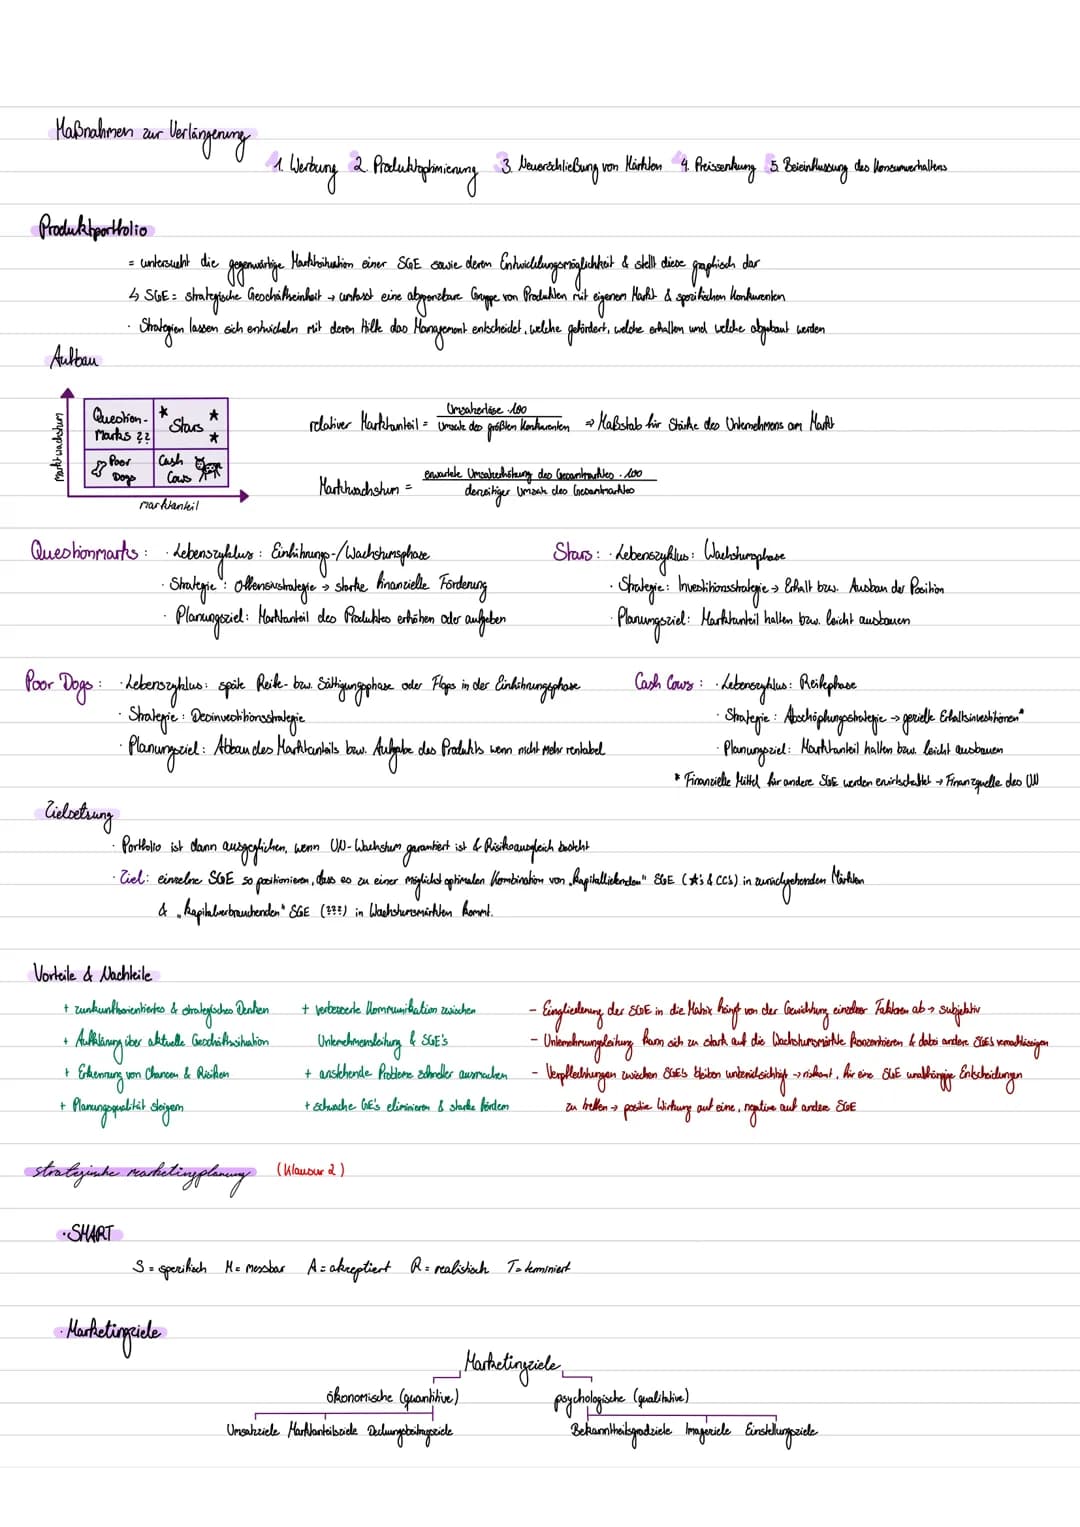 Maßnahmen zur Verlängerung
1. Werbung 2. Produktoptimierung 3. Neuerschließung von Märkten 4. Preissenkung 5. Beeinflussung des Konsumverhaltens
Produktportfolio
= untersucht die gegenwärtige Marktsituation einer SGE sowie deren Entwicklungsmöglichkeit & stellt diese graphisch dar
↳ SGE = strategische Geschäftseinheit → umfasst eine abgrenzbare Gruppe von Produkten mit eigenem Markt & spezifischen Konkurrenten
· Strategien lassen sich entwickeln mit deren Hilfe das Management entscheidet, welche gefördert, welche erhalten und welche abgebaut werden
Aufbau
Marktwachstum
Question-Marks ??
Stars
Poor Dogs
Cash Cows
Marktanteil
relativer Marktanteil = Umsatzerlöse · 100 / Umsatz des größten Konkurrenten ⇒ Maßstab für Stärke des Unternehmens am Markt
Marktwachstum = erwartete Umsatzerhöhung des Gesamtmarktes · 100 / derzeitiger Umsatz des Gesamtmarktes
Questionmarks: · Lebenszyklus: Einführungs-/Wachstumsphase
· Strategie: Offensivstrategie → starke finanzielle Förderung
· Planungsziel: Marktanteil des Produktes erhöhen oder aufgeben
Stars: · Lebenszyklus: Wachstumsphase
· Strategie: Investitionsstrategie → Erhalt bzw. Ausbau der Position
· Planungsziel: Marktanteil halten bzw. leicht ausbauen
Poor Dogs: · Lebenszyklus: späte Reife- bzw. Sättigungsphase oder Flops in der Einführungsphase
· Strategie: Desinvestitionsstrategie
· Planungsziel: Abbau des Marktanteils bzw. Aufgabe des Produkts wenn nicht mehr rentabel
Cash Cows: · Lebenszyklus: Reifephase
· Strategie: Abschöpfungsstrategie → gezielte Erhaltsinvestitionen*
· Planungsziel: Marktanteil halten bzw. leicht ausbauen
* Finanzielle Mittel für andere SGE werden erwirtschaftet → Finanzquelle des UN
Zielsetzung
· Portfolio ist dann ausgeglichen, wenn UN-Wachstum garantiert ist & Risikoausgleich besteht
· Ziel: einzelne SGE so positionieren, dass es zu einer möglichst optimalen Kombination von „Kapitalliefernden" SGE (★'s & CC's) in zurückgehenden Märkten
& „kapitalverbrauchenden" SGE (???) in Wachstumsmärkten kommt.
Vorteile & Nachteile
+ zunkunftsorientiertes & strategisches Denken
+ Aufklärung über aktuelle Geschäftssituation
+ Erkennung von Chancen & Risiken
+ Planungsqualität steigern
+ verbesserte Kommunikation zwischen
Unternehmensleitung & SGE's
+ anstehende Probleme schneller ausmachen
+ schwache GE's eliminieren & starke fördern
- Eingliederung der SGE in die Matrix hängt von der Gewichtung einzelner Faktoren ab → subjektiv
- Unternehmungsleitung kann sich zu stark auf die Wachstumsmärkte konzentrieren & dabei andere SGE's vernachlässigen
- Verpflechtungen zwischen SGE's bleiben unberücksichtigt → riskant, für eine SGE unabhängige Entscheidungen
zu treffen → positive Wirkung auf eine, negative auf andere SGE
strategische Marketingplanung (Klausur 2)
· SMART
S = spezifisch M = messbar A = akzeptiert R = realistisch T = terminiert
· Marketingziele
Marketingziele
ökonomische (quantitive) psychologische (qualitative)
Umsatzziele Marktanteilsziele Deckungsbeitragsziele Bekanntheitsgradziele Imageziele Einstellungsziele